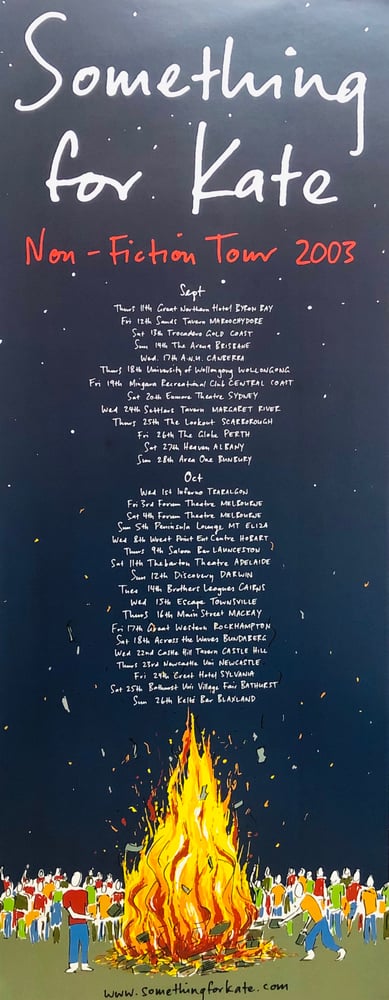 Something
for Kate
Non-Fiction Tour 2003
Sept
Thurs 11th Great Northern Hotel BYRON BAY
Fri 12th Sands Tavern MAROOCHYDORE
Sat 13th Trocadero GOLD COAST
Sun 14th The Arena BRISBANE
Wed. 17th A.N.U. CANBERRA
Thurs 18th University of Wollongong WOLLONGONG
Fri 19th Mingara Recreational Club CENTRAL COAST
Sat 20th Enmore Theatre SYDNEY
Wed 24th Settlers Tavern MARGARET RIVER
Thurs 25th The Lookout SCARBOROUGH
Fri 26th The Globe PERTH
Sat 27th Heaven ALBANY
Sun 28th Area One BUNBURY
Oct
Wed 1st Inferno TRARALGON
Fri 3rd Forum Theatre MELBOURNE
Sat 4th Forum Theatre MELBOURNE
Sun 5th Peninsula Lounge MT ELIZA
Wed 8th Wrest Point Ent Centre HOBART
Thurs 9th Saloon Bar LAUNCESTON
Sat 11th Thebarton Theatre ADELAIDE
Sun 12th Discovery DARWIN
Tues 14th Brothers Leagues CAIRNS
Wed 15th Escape TOWNSVILLE
Thurs 16th Main Street MACKAY
Fri 17th Great Western ROCKHAMPTON
Sat 18th Across the Waves BUNDABERG
Wed 22nd Castle Hill Tavern CASTLE HILL
Thurs 23rd Newcastle Uni NEWCASTLE
Fri 24th Crest Hotel SYLVANIA
Sat 25th Bathurst Uni Village Fair BATHURST
Sun 26th Kelts Bar BLAXLAND
www.somethingforkate.com